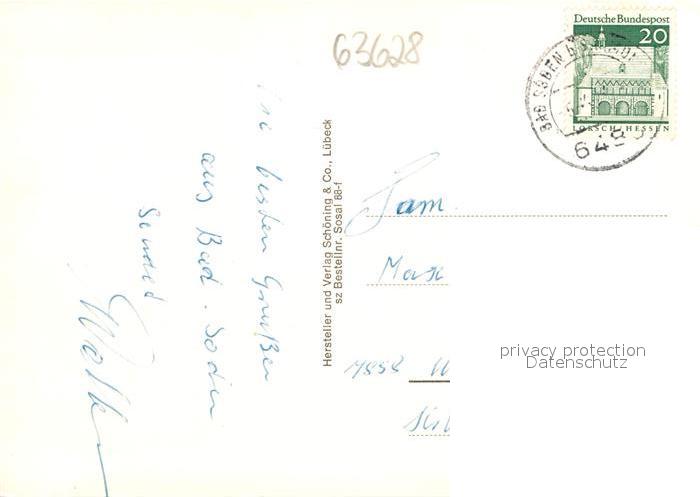 63628
Deutsche Bundespost
20
LORSCH/HESSEN
BAD SODEN
648
Die besten Grüßen
aus Bad. Soden
sendet
Hersteller und Verlag Schöning & Co., Lübeck
sz Bestellnr. Sosal 88-f
Fam.
Max
7858 W
privacy protection
Datenschutz